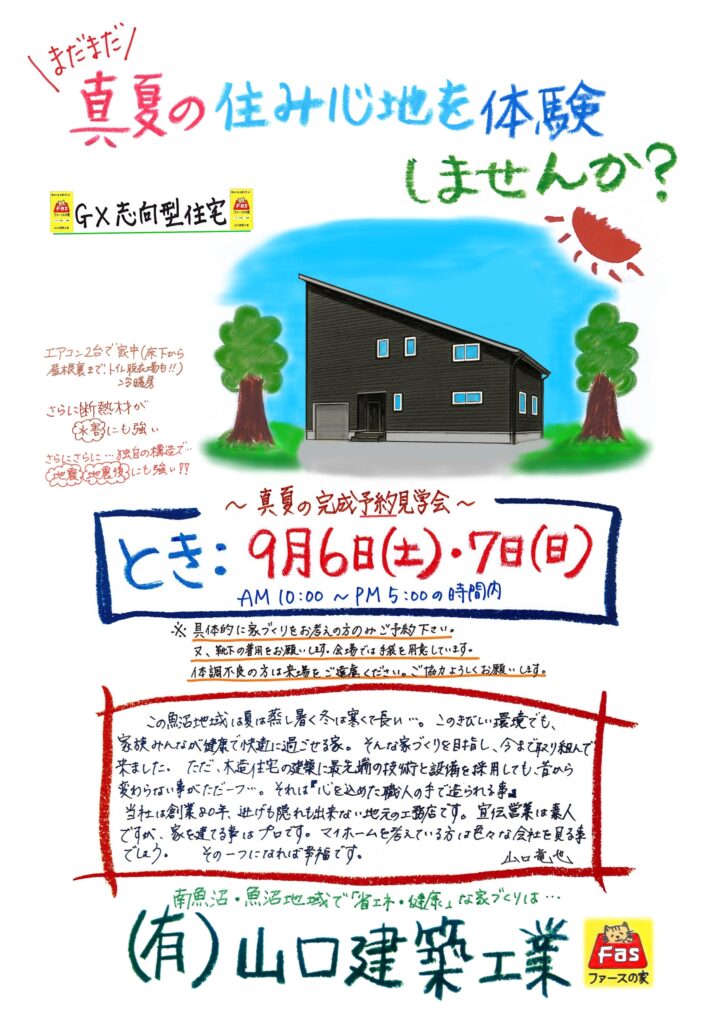 まだまだ
真夏の住み心地を体験
しませんか?
GX志向型住宅
Fas
ファースの家
Fas
ファースの家
エアコン2台で家中(床下から
屋根裏まで、トイレ脱衣場も!!)
冷暖房
さらに断熱材が
水害にも強い
さらにさらに…独自の構造で…
地震 地震後にも強い!?
~真夏の完成予約見学会~
とき: 9月6日(土)・7日(日)
AM 10:00 ~ PM 5:00の時間内
※ 具体的に家づくりをお考えの方のみご予約下さい。
又、靴下の着用をお願いします。会場では手袋を用意しています。
体調不良の方は来場をご遠慮ください。ご協力よろしくお願いします。
この魚沼地域は夏は蒸し暑く冬は寒くて長い…。このきびしい環境でも、
家族みんなが健康で快適に過ごせる家。そんな家づくりを目指し、今まで取り組んで
来ました。ただ、木造住宅の建築に最先端の技術と設備を採用しても、昔から
変わらない事がただ一つ…。それは『心を込めた職人の手で造られる事』
当社は創業80年、逃げも隠れも出来ない地元の工務店です。宣伝営業は素人
ですが、家を建てる事はプロです。マイホームを考えている方は色々な会社を見る事
でしょう。その一つになれば幸福です。
山口竜也
南魚沼・魚沼地域で「省エネ・健康」な家づくりは…
(有)山口建築工業
Fas
ファースの家